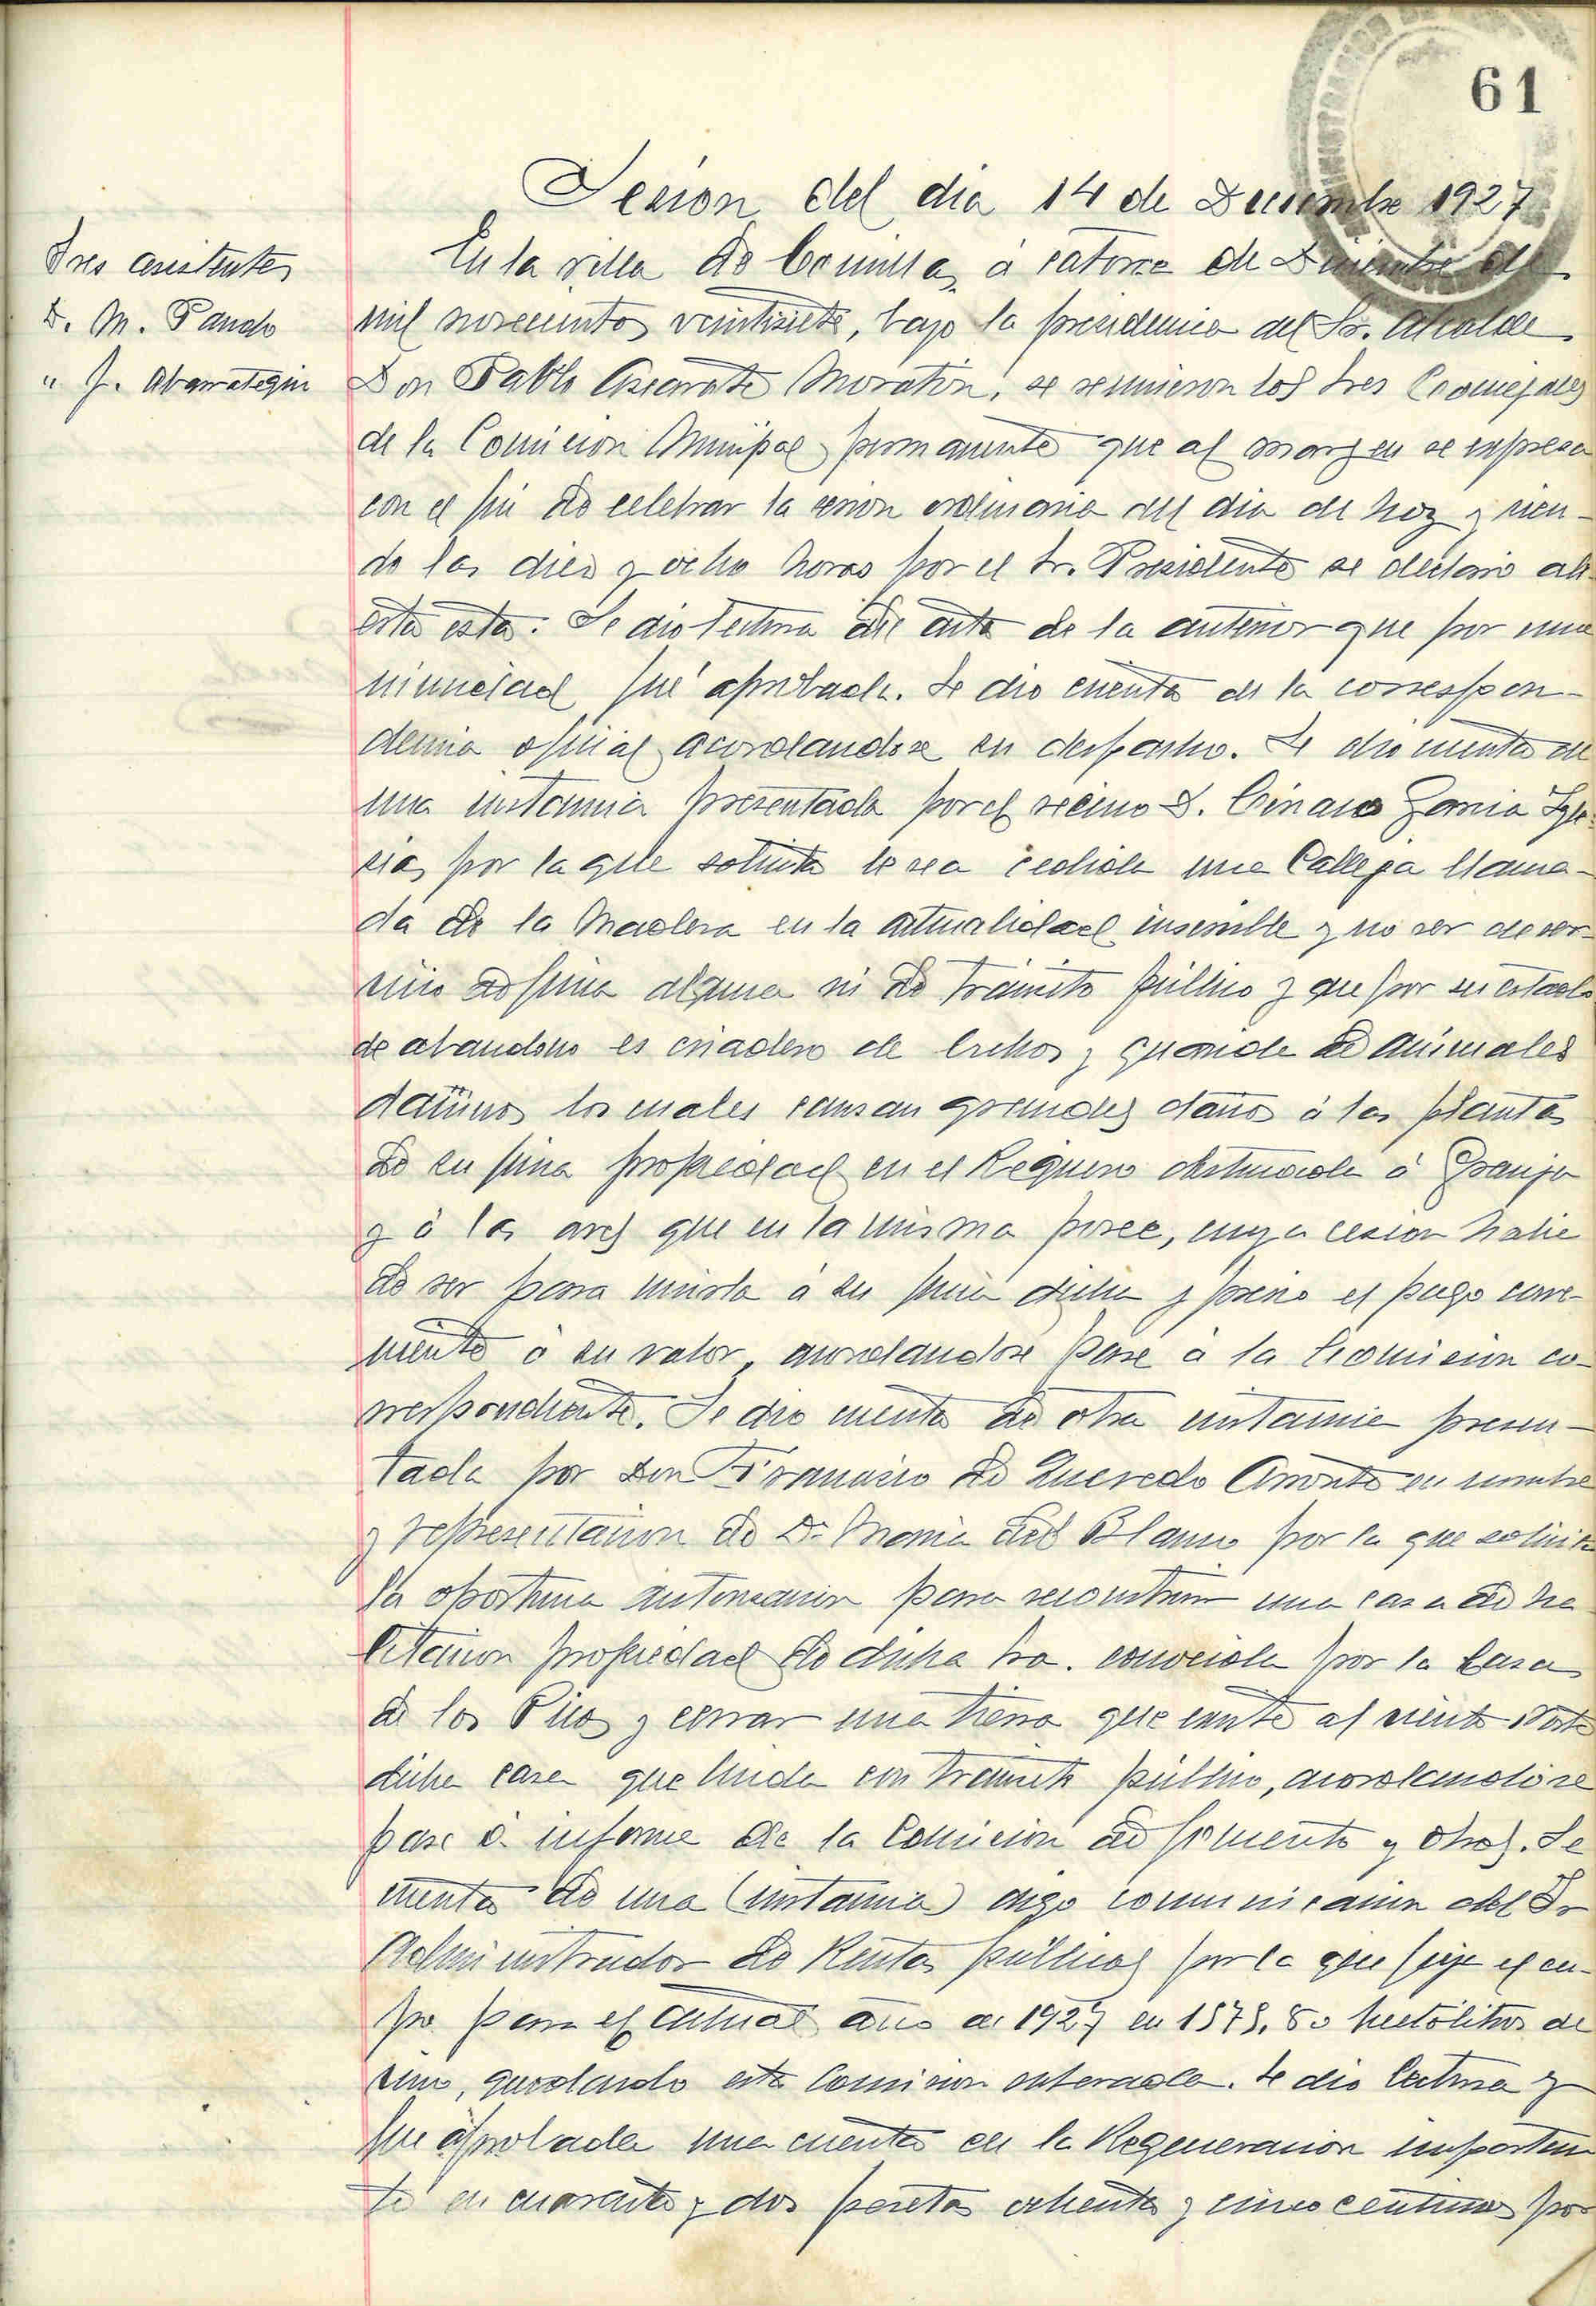 61
Sesion del dia 14 de Diciembre 1927
Sres asistentes
D. M. Pando
" J. Abarrategui
En la villa de Comillas, á catorce de Diciembre de
mil novecientos veintisiete, bajo la presidencia del Sr. Alcalde
Don Pablo Moratin, se reunieron los Sres Concejales
de la Comision Municipal permanente que al margen se expresa
con el fin de celebrar la sesion ordinaria del dia de hoy y sien-
do las diez y ocho horas por el Sr. Presidente se declaro abi
erta esta. Se dio lectura del acta de la anterior que por una
nimidad fué aprobada. Se dio cuenta de la correspon-
dencia oficial acordandose su despacho. Se dio cuenta de
una instancia presentada por el vecino D. Garcia Igle-
sias, por la que solicita le sea cedida una Calleja llama-
da de la Madera en la actualidad inservible y no ser de ser-
vicio de finca alguna ni de tránsito público y que por su estado
de abandono es criadero de bichos y guarida de animales
dañinos los cuales causan grandes daños á las plantas
de su finca propiedad en el Reguero destinada á Granja
y á las aves que en la misma posee, cuya cesion habia
de ser para unirla á su finca dicha y previo el pago conve-
niente á su valor, acordandose pase á la Comision co-
rrespondiente. Se dio cuenta de otra instancia presen-
tada por Don Francisco de Quevedo en nombre
y representacion de Dª Maria del Blanco por la que solicita
la oportuna autorizacion para reconstruir una casa de ha
bitacion propiedad de dicha Sra. conocida por la Casa
de los Picos y cerrar una tierra que existe al viento Norte
dicha casa que linda con transito público, acordandose
pase á informe de la Comision de fomento y obras. Se
cuenta de una (instancia) digo comunicacion del Sr
Administrador de Rentas públicas por la que fija el cu-
po para el actual año de 1927 en 1575,80 hectólitros de
vino, quedando esta Comision enterada. Se dio lectura y
fue aprobada una cuenta de la Regeneracion importan
te en cuarenta y dos pesetas ochenta y cinco centimos por